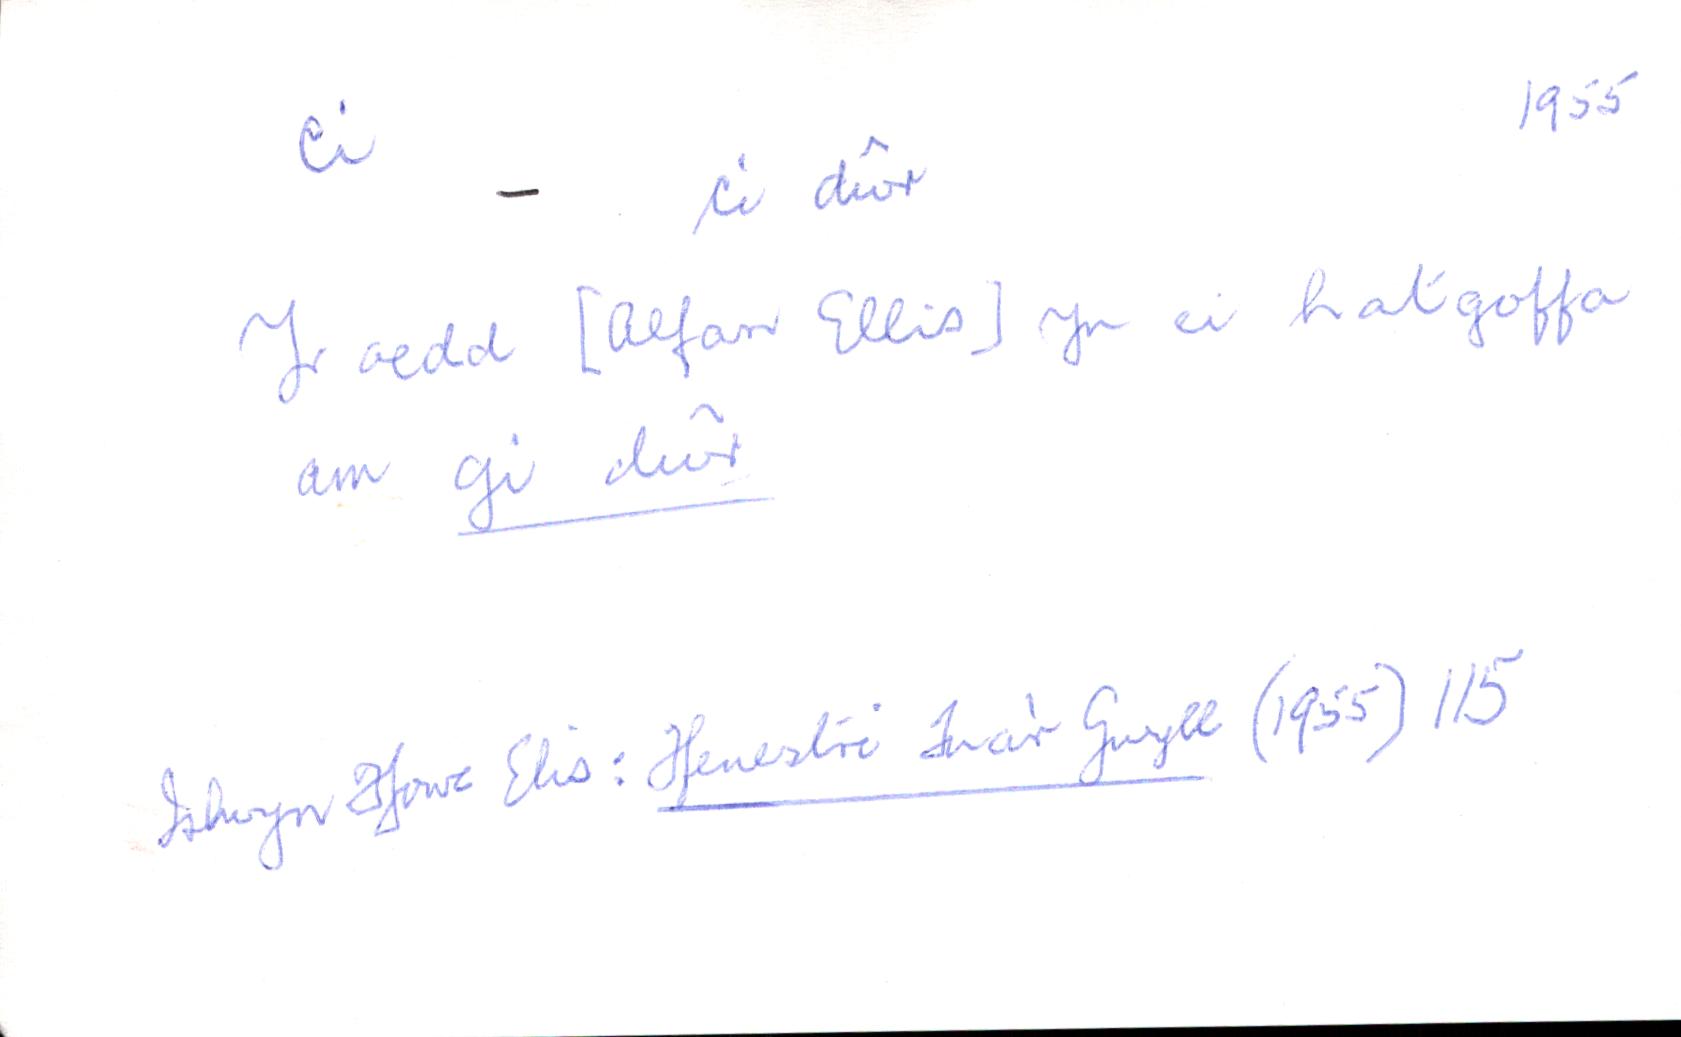 ci
1955
— ci dŵr
Yr oedd [Alfan Ellis] yn ei hatgoffa
am gi dŵr
Islwyn Ffowc Elis: Ffenestri Tua'r Gwyll (1955) 115